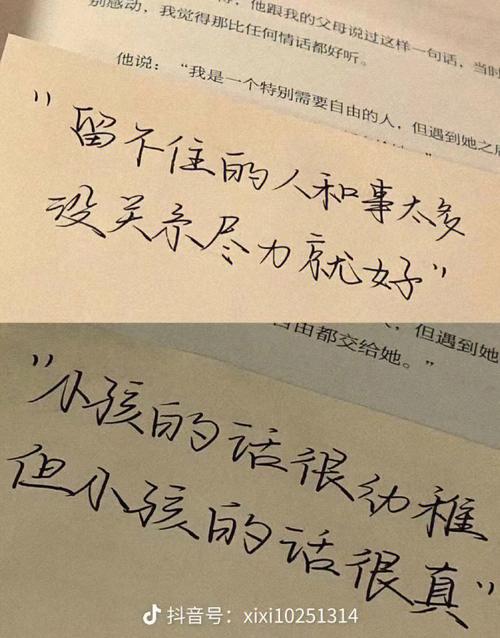 他跟我的父母说过这样一句话，当时
别感动，我觉得那比任何情话都好听。
他说：“我是一个特别需要自由的人，但遇到她之后
"留不住的人和事太多
没关系尽力就好"
但遇到她
自由都交给她。”
"小孩的话很幼稚
但小孩的话很真"
抖音号：xixi10251314